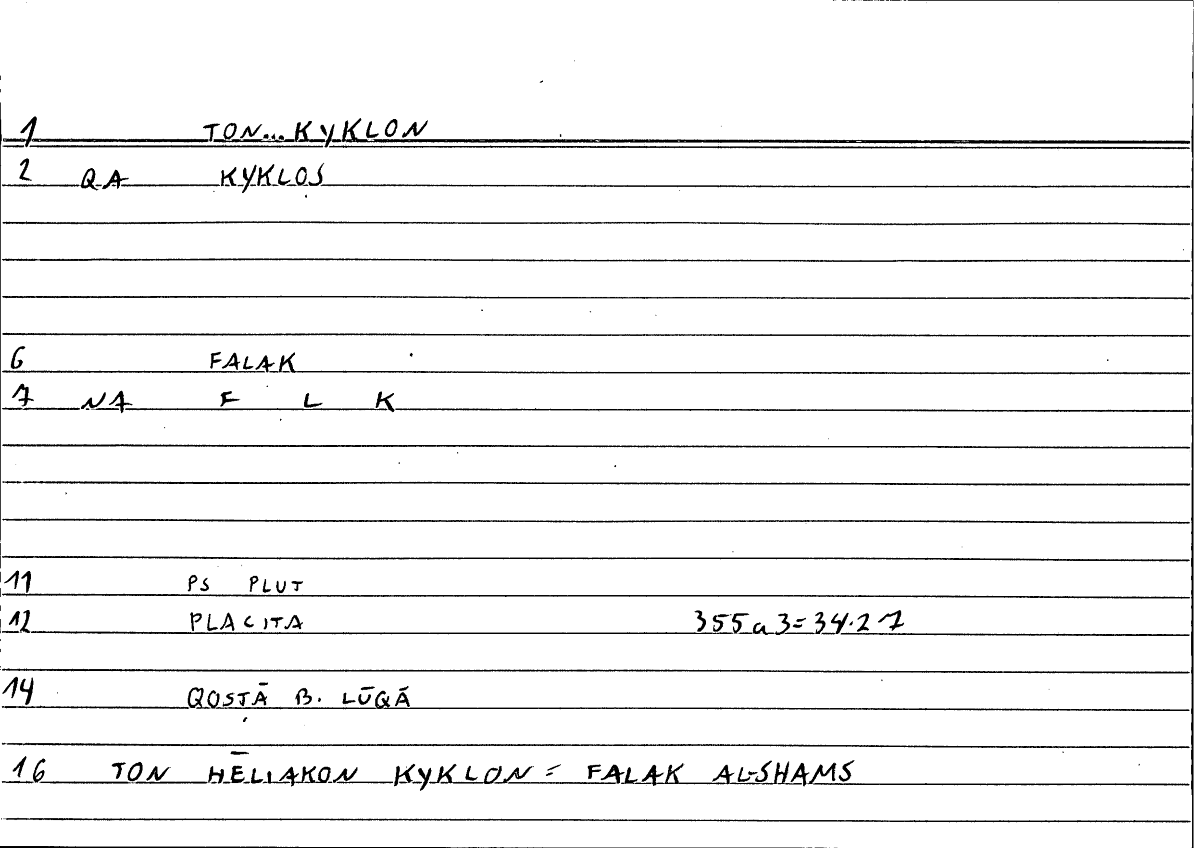 1 TON...KYKLON
2 QA KYKLOS
6 FALAK
7 NA F L K
11 PS PLUT
12 PLACITA 355a3=34.27
14 QOSṬĀ B. LŪQĀ
16 TON HĒLIAKON KYKLON = FALAK AL-SHAMS